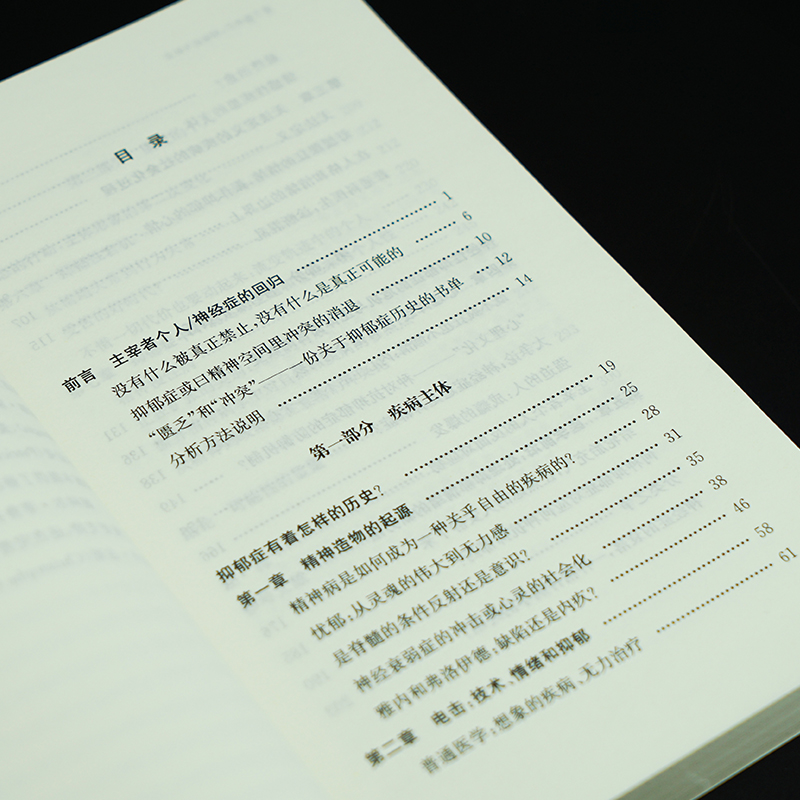 目 录
前言 主宰者个人/神经症的回归 …… 1
没有什么被真正禁止，没有什么是真正可能的 …… 6
抑郁症或曰精神空间里冲突的消退 …… 10
“匮乏”和“冲突”——一份关于抑郁症历史的书单 …… 12
分析方法说明 …… 14
第一部分 疾病主体
抑郁症有着怎样的历史？ …… 19
第一章 精神造物的起源 …… 25
精神病是如何成为一种关乎自由的疾病的？ …… 28
忧郁：从灵魂的伟大到无力感 …… 31
是脊髓的条件反射还是意识？ …… 35
神经衰弱症的冲击或心灵的社会化 …… 38
雅内和弗洛伊德：缺陷还是内疚？ …… 46
第二章 电击：技术、情绪和抑郁 …… 58
普通医学：想象的疾病、无力治疗 …… 61